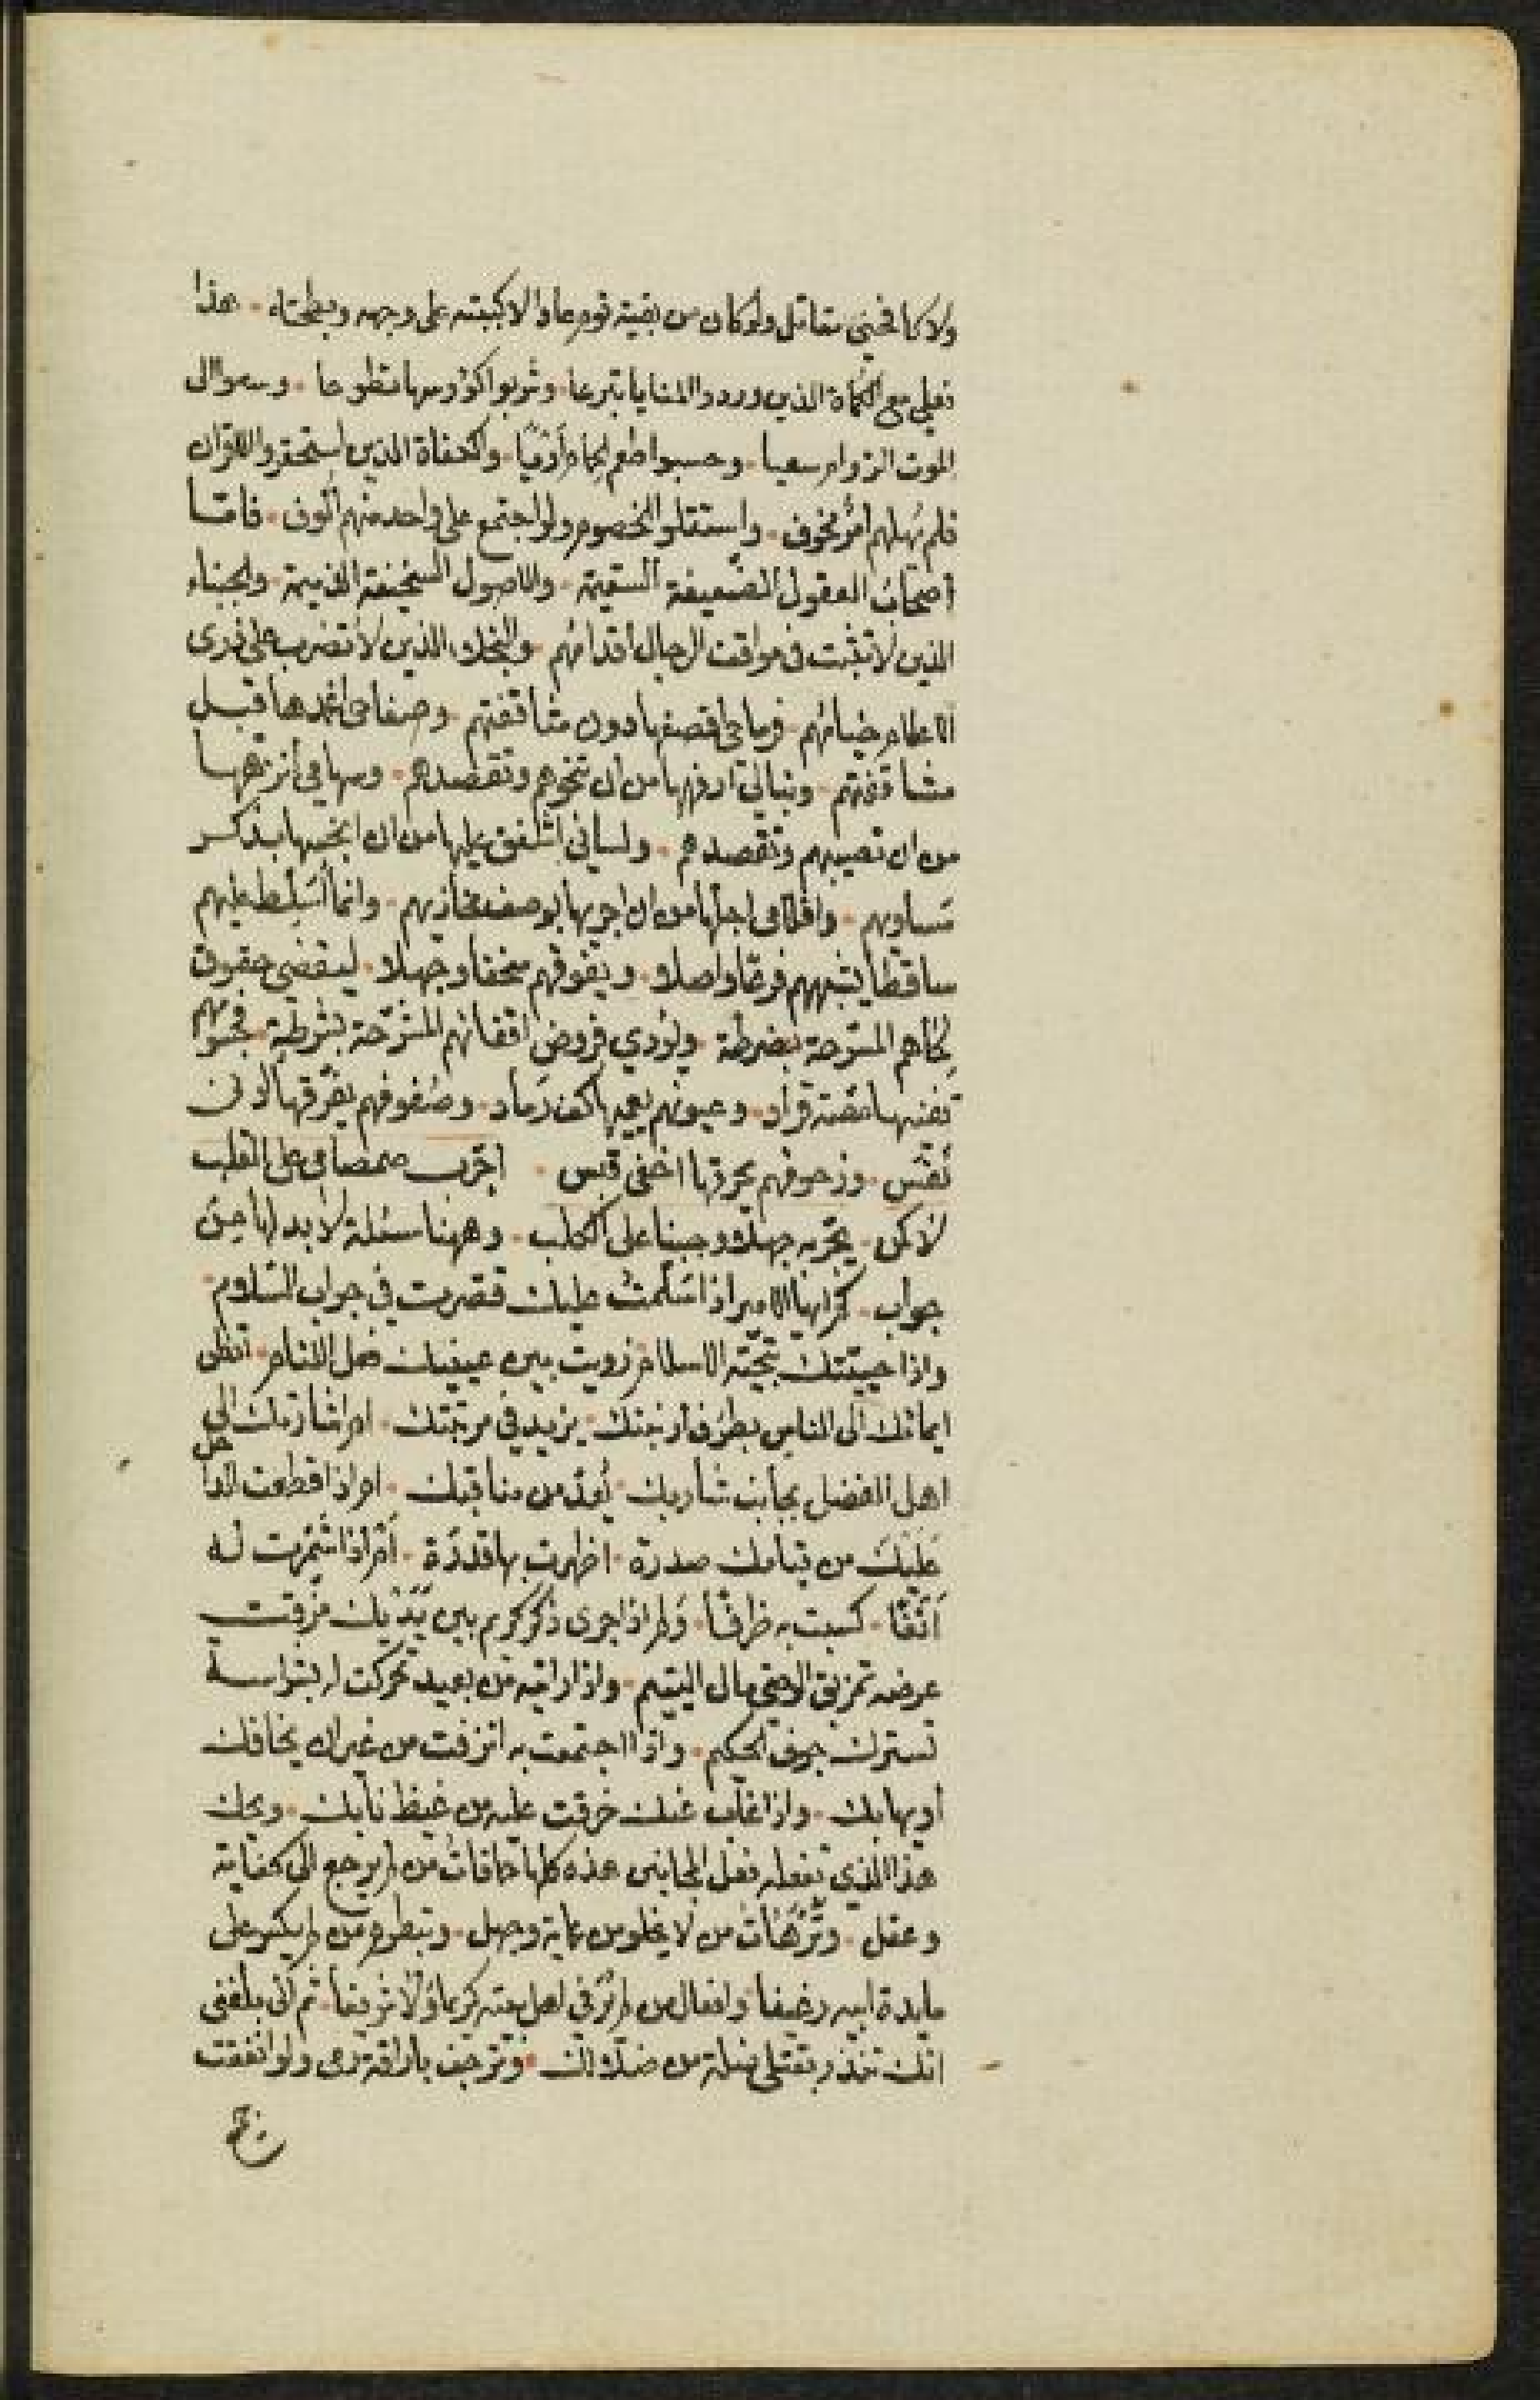 ولا كافحني مقاتل ولو كان من بقية قوم عاد الا كببته على وجهه وبطحتاه . هذا
فعلي مع الكماة الذين وردوا المنايا تبرعا . وشربوا كؤوسها تطوعا . وسعوا الى
الموت الزوام سعيا . وحسبوا طعم الحمام أريًا . والكفاة الذين استحقروا الاقران
فلم يهلهم أمر مخوف . واستقلوا الخصوم ولو اجتمع على واحد منهم ألوف . فامّا
أصحاب العقول الضّعيفة السقيمة . والاصول السخيفة الذميمة . والجبناء
الذين لا تثبت في مواقف الرجال أقدامهم . والبخلاء الذين لا تضرب على ذرى
الاعلام خيامهم . فرماحي اقصفها دون مثاقفتهم . وصفاحي اغمدها قبل
مشاقفتهم . ونبالي ارفهها من أن تنحوهم وتقصدهم . وسهامي أنزهها
من ان تصيبهم وتقصدهم . ولساني اشفق عليها من ان انجسها بذكر
مساويهم . واقلامي اجلها من ان اجريها بوصف مخازيهم . وانما أسلط عليهم
ساقطا يشبههم فرعًا واصلا . ويفوقهم سخفا وجهلا . ليقضي حقوق
لحاهم المسرّحة بضرطة . ويؤدي فروض اقفائهم المشرّحة بشرطة . فجسومهم
تفنيها مصّة قراد . وعيونهم يعميها كف رماد . وصفوفهم يفرّقها أدون
نفس . وزحوفهم يحرقها اخفى قبس . اجرّب صمصامي على القلب
لا كمن . يجرّبه جهلا وجبنا على الكلب . وههنا مسئلة لا بد لها من
جواب . خبر ايها الامير اذا سلّمت عليك فقصرت في جواب السّلام
واذا حييتك بتحيّة الاسلام زويت بين عينيك فعل اللئام . أتظن
ايمائك الى الناس بطرف أرنبتك . يزيد في مرتبتك . ام اشارتك الى
اهل الفضل بجانب شاربك . يُعدّ من مناقبك . ام اذا قطعت الداخل
عليك من قيامك صدرة . اظهرت بها قدرة . أم اذا شمّرت له
أنفًا . كسبت به ظرفًا . ولم اذا جرى ذكر كريم بين يديك مزقت
عرضه تمزيق الوصي مال اليتيم . واذا رأيته من بعيد تحركت له بشراسة
تستر لك جوف الحكيم . واذا اجتمعت به انزفت من غير ان يخافك
أو يهابك . واذا غاب عنك خرقت عليه من غيظ نابك . ويحك
هذا الذي تفعله فعل المجانين هذه كلها حماقات من لم يرجع الى كفاية
وعقل . وترّهات من لا يخلو من عماية وجهل . وتبظرم من لم يكسر على
مايدة ابيه رغيفا . وافعال من لم ير في اهل بيته كريما ولا شريفا . ثم انّى بلغني
انك تنذر بقتلي ضلة من ضلالك . وترجف باراقة دمي ولو اتفقت